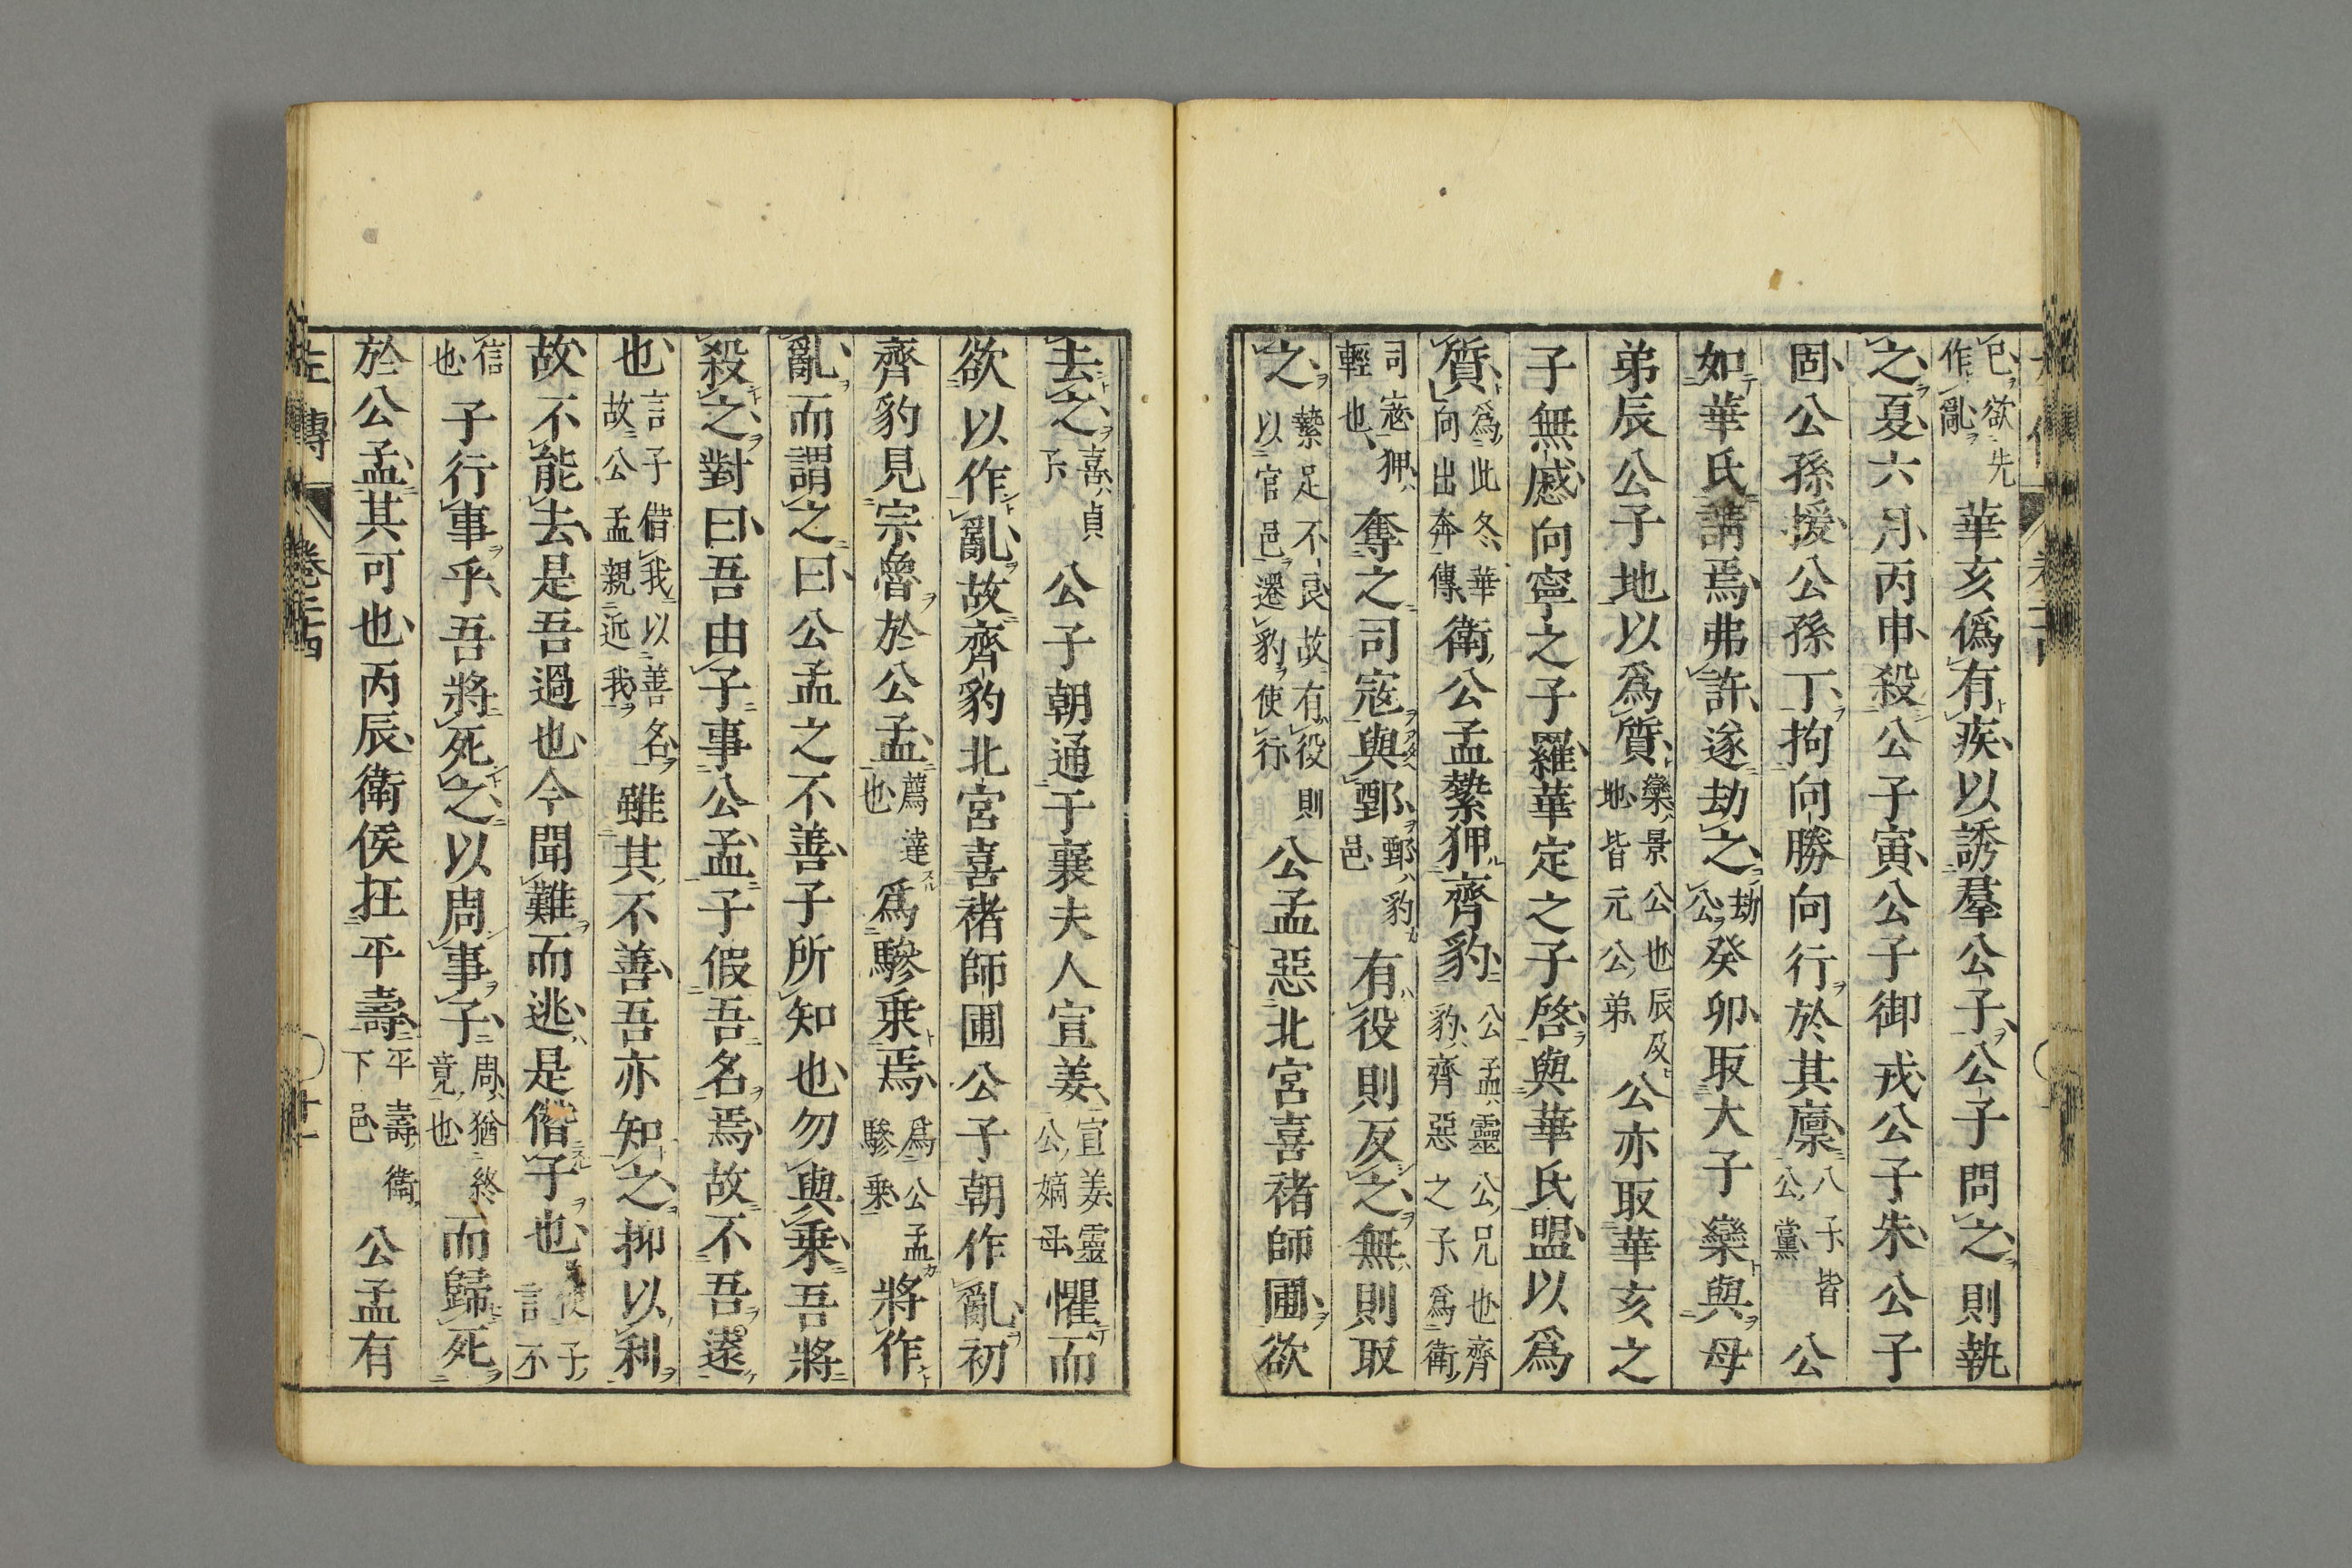 已欲先作亂華亥偽有疾以誘羣公子公子問之則執
之夏六月丙申殺公子寅公子御戎公子朱公子
固公孫援公孫丁拘向勝向行於其廩八子皆公黨公
如華氏請焉弗許遂劫之劫公癸卯取大子欒與母
弟辰公子地以爲質欒景公也辰及地皆元公弟公亦取華亥之
子無慼向寧之子羅華定之子啓與華氏盟以爲
質爲此冬華向出奔傳衛公孟縶狎齊豹公孟靈公兄也齊豹齊惡之子爲衛
司寇狎輕也奪之司寇與鄄鄄豹邑有役則反之無則取
之縶足不良故有役則以官邑還豹使行公孟惡北宮喜褚師圃欲
去之喜貞子公子朝通于襄夫人宣姜宣姜靈公嫡母懼而
欲以作亂故齊豹北宮喜褚師圃公子朝作亂初
齊豹見宗魯於公孟薦達也爲驂乗焉爲公孟驂乗將作
亂而謂之曰公孟之不善子所知也勿與乗吾將
殺之對曰吾由子事公孟子假吾名焉故不吾遠
也言子借我以善名故公孟親近我雖其不善吾亦知之抑以利
故不能去是吾過也今聞難而逃是僭子也使子言不
信也子行事乎吾將死之以周事子周猶終竟也而歸死
於公孟其可也丙辰衛侯在平壽平壽衛下邑公孟有
左傳 卷二十四 十一